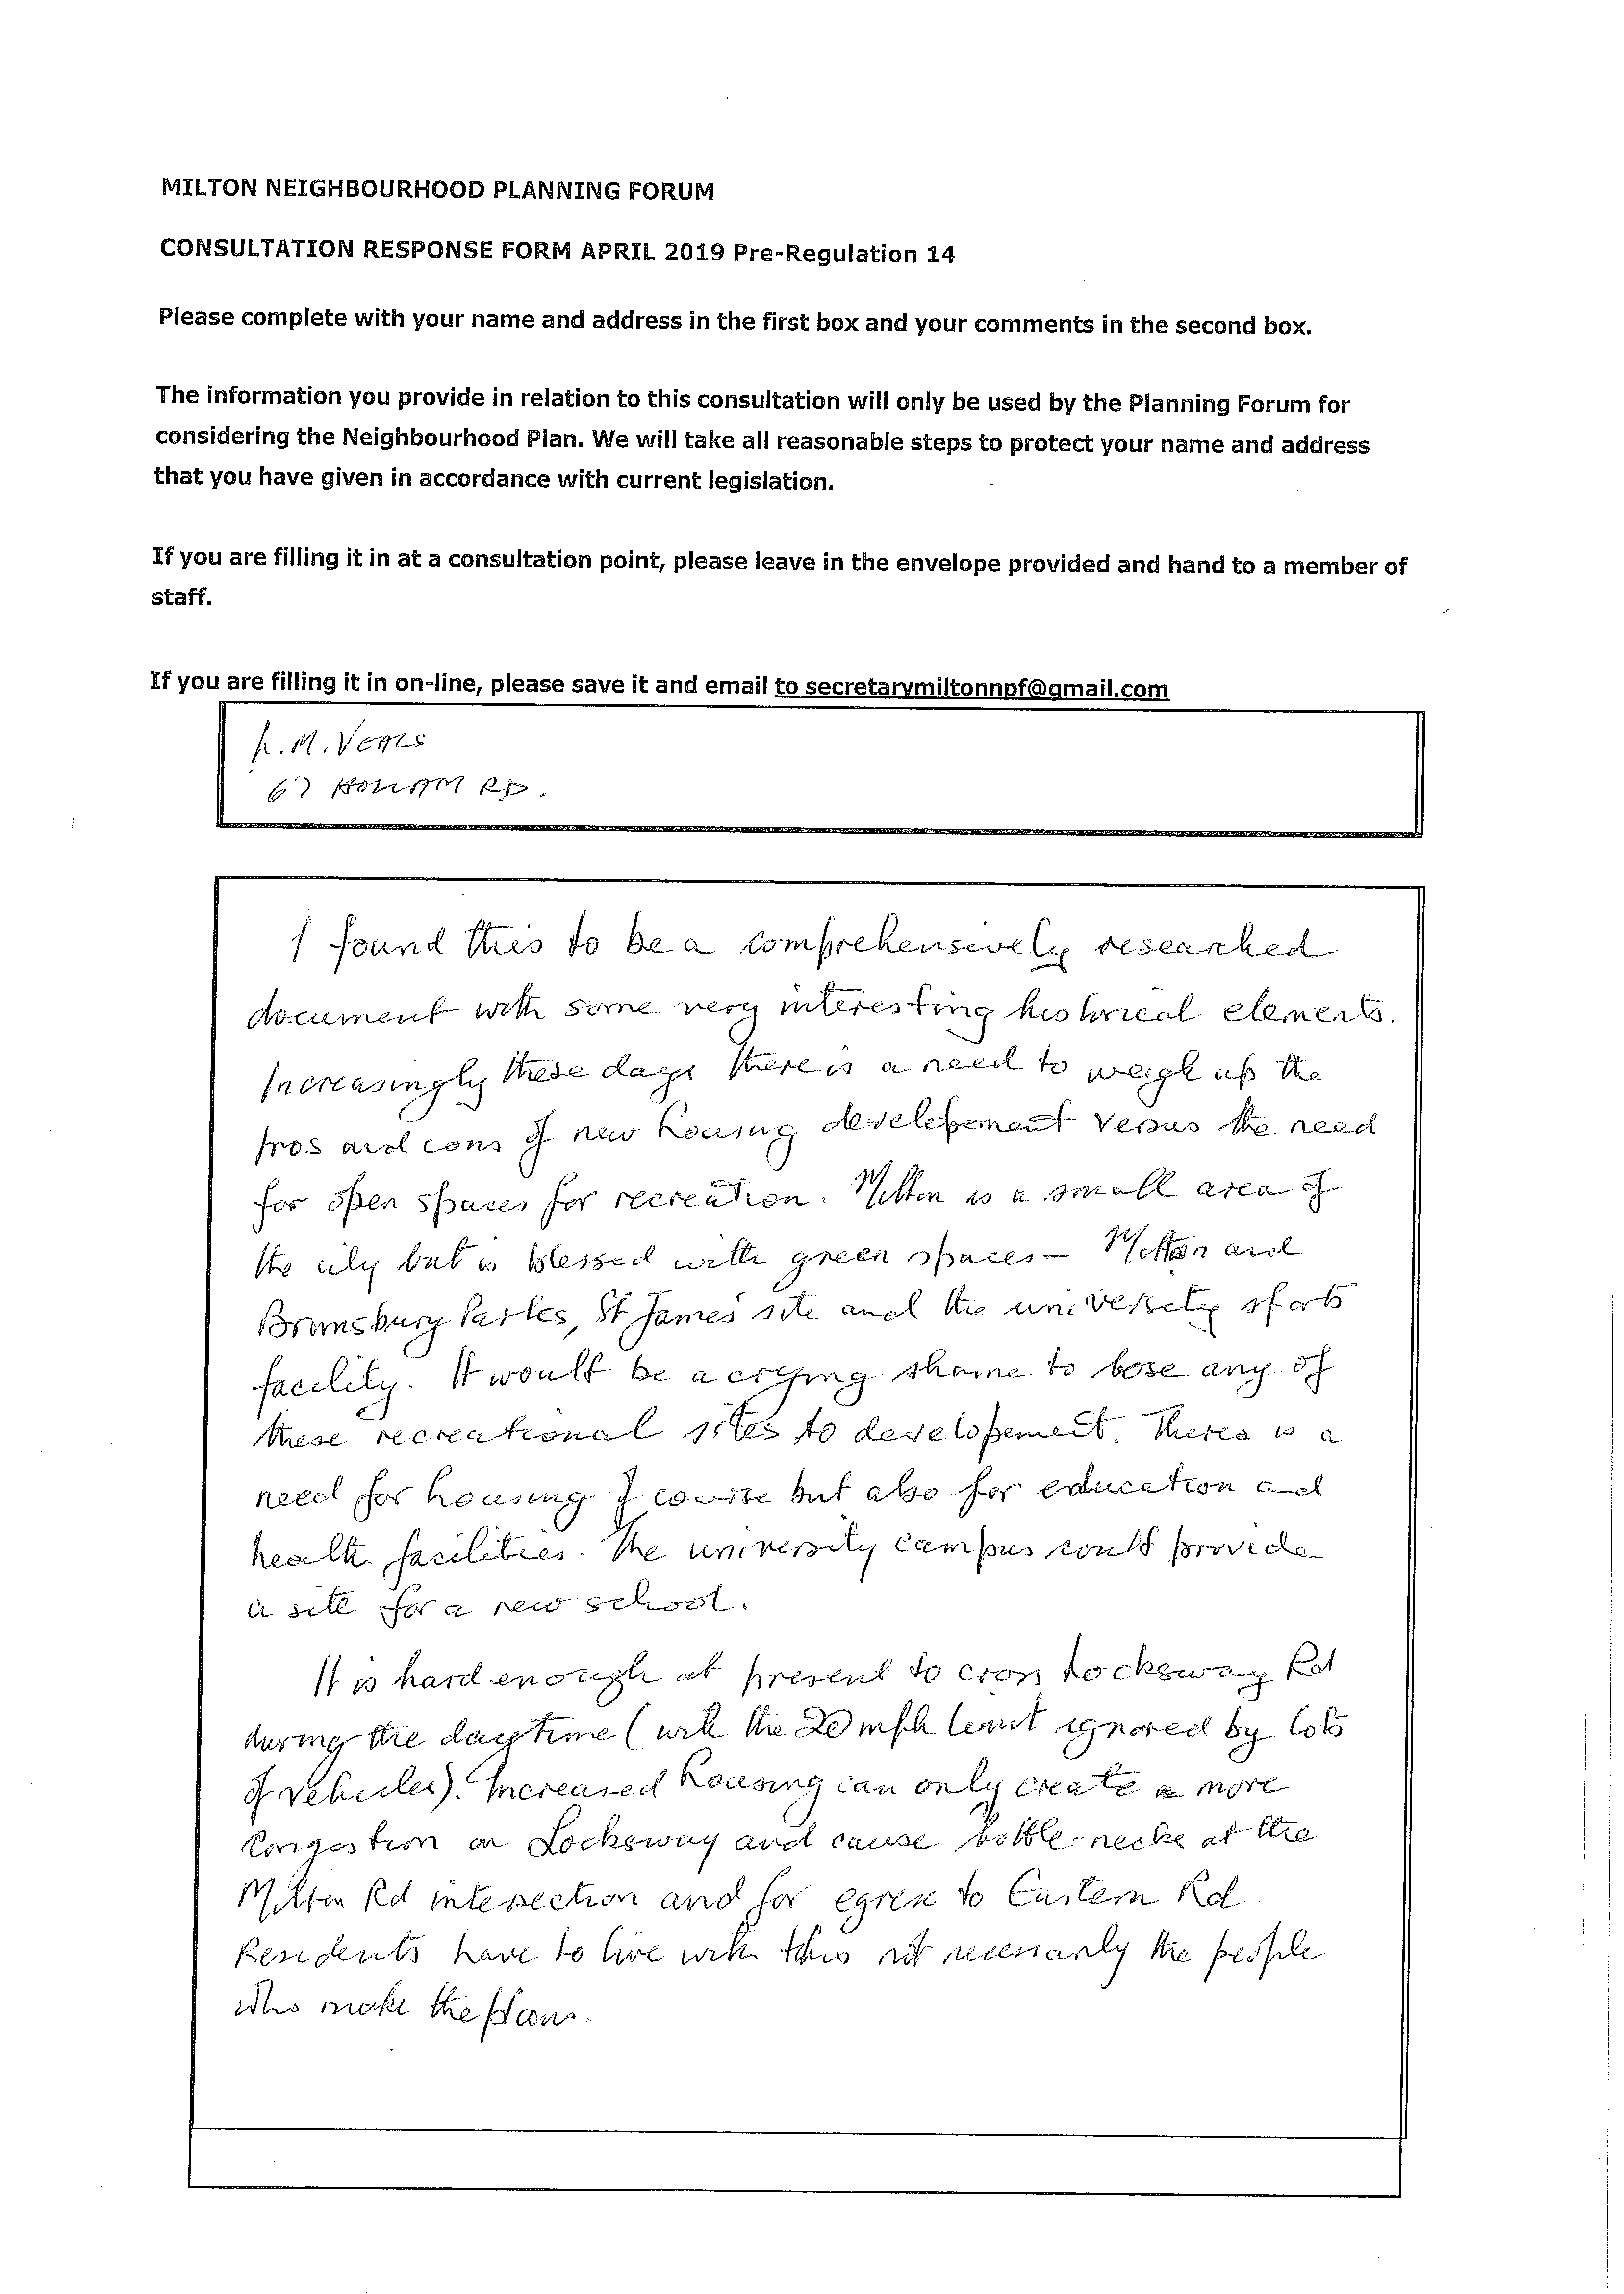 MILTON NEIGHBOURHOOD PLANNING FORUM
CONSULTATION RESPONSE FORM APRIL 2019 Pre-Regulation 14
Please complete with your name and address in the first box and your comments in the second box.
The information you provide in relation to this consultation will only be used by the Planning Forum for
considering the Neighbourhood Plan. We will take all reasonable steps to protect your name and address
that you have given in accordance with current legislation.
If you are filling it in at a consultation point, please leave in the envelope provided and hand to a member of
staff.
If you are filling it in on-line, please save it and email to secretarymiltonnpf@gmail.com
M.
67 RD.
I found this to be a comprehensively researched
document with some very interesting historical elements.
Increasingly these days there is a need to weigh up the
pros and cons of new housing developement versus the need
for open spaces for recreation. Milton is a small area of
the city but is blessed with green spaces - Milton and
Bransbury Parks, St James' site and the university sports
facility. It would be a crying shame to lose any of
these recreational sites to developement. Theres is a
need for housing of course but also for education and
health facilities. The university campus could provide
a site for a new school.
It is hard enough at present to cross Locksway Rd
during the daytime (with the 20 mph limit ignored by lots
of vehicles). Increased housing can only create more
congestion on Locksway and cause bottle-necks at the
Milton Rd intersection and for egress to Eastern Rd.
Residents have to live with this not necessarily the people
who make the plans.